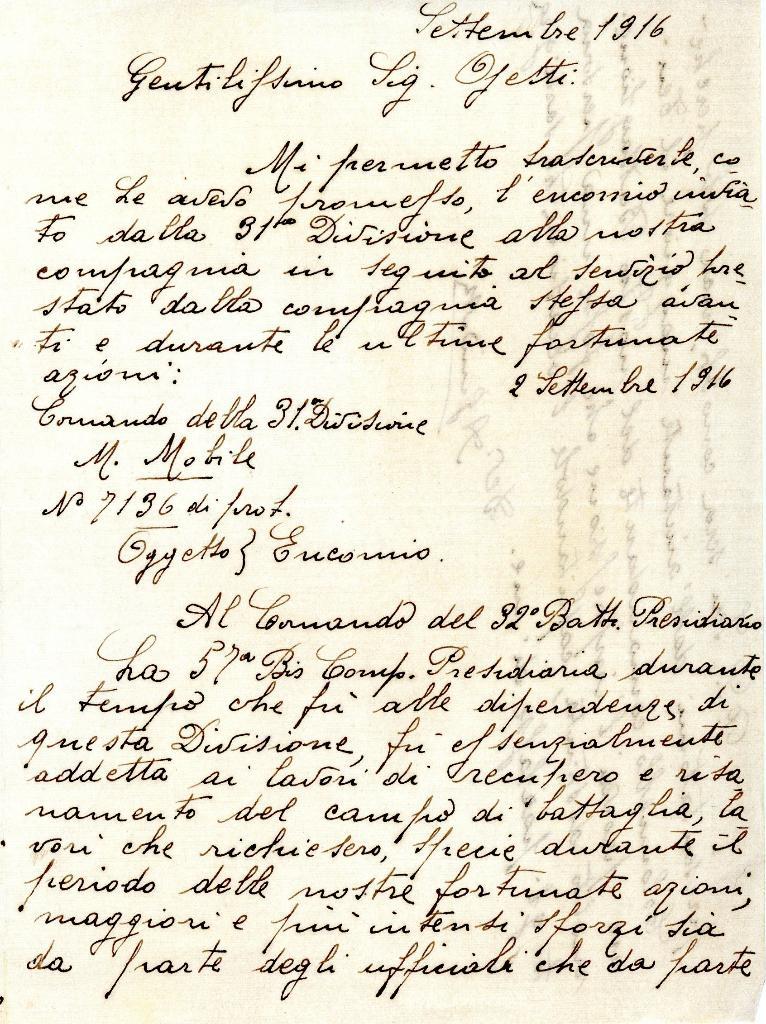 Settembre 1916
Gentilissimo Sig. Ojetti.
Mi permetto trascriverle, co
me Le avevo promesso, l'encomio invia-
to dalla 31ma Divisione alla nostra
compagnia in seguito al servizio pre-
stato dalla compagnia stessa avan-
ti e durante le ultime fortunate
azioni:
2 Settembre 1916
Comando della 31.a Divisione
M. Mobile
No 7136 di prot.
Oggetto} Encomio.
Al Comando del 32o Batt. Presidiario
La 57a Bis Comp. Presidiaria durante
il tempo che fù alle dipendenze di
questa Divisione, fù essenzialmente
addetta ai lavori di recupero e risa
namento del campo di battaglia, la-
vori che richiesero, specie durante il
periodo delle nostre fortunate azioni,
maggiori e più intensi sforzi sia
da parte degli ufficiali che da parte